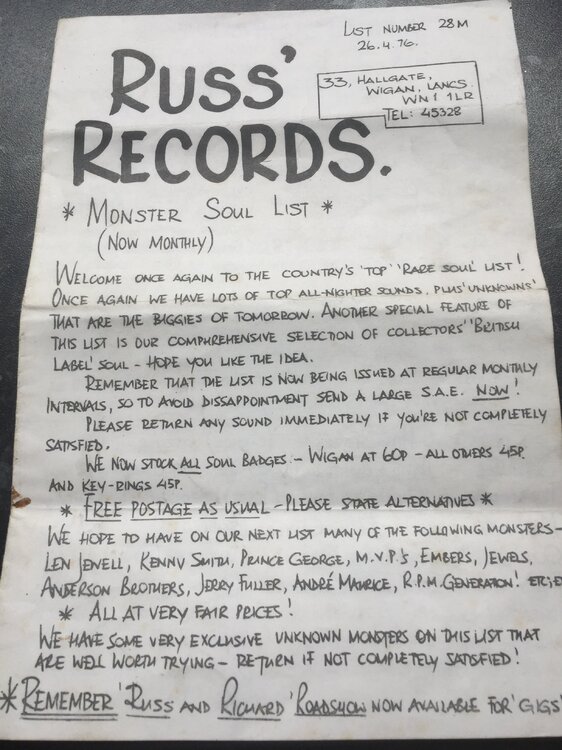 LIST NUMBER 28M
26.4.76.
RUSS'
RECORDS.
33, HALLGATE,
WIGAN, LANCS.
WN1 1LR
TEL: 45328
* MONSTER SOUL LIST *
(NOW MONTHLY)
WELCOME ONCE AGAIN TO THE COUNTRY'S 'TOP' 'RARE SOUL' LIST!
ONCE AGAIN WE HAVE LOTS OF TOP ALL-NIGHTER SOUNDS, PLUS 'UNKNOWNS'
THAT ARE THE BIGGIES OF TOMORROW. ANOTHER SPECIAL FEATURE OF
THIS LIST IS OUR COMPHREHENSIVE SELECTION OF COLLECTORS' 'BRITISH
LABEL' SOUL - HOPE YOU LIKE THE IDEA.
REMEMBER THAT THE LIST IS NOW BEING ISSUED AT REGULAR MONTHLY
INTERVALS, SO TO AVOID DISSAPPOINTMENT SEND A LARGE S.A.E. NOW!
PLEASE RETURN ANY SOUND IMMEDIATELY IF YOU'RE NOT COMPLETELY
SATISFIED.
WE NOW STOCK ALL SOUL BADGES - WIGAN AT 60P - ALL OTHERS 45P.
AND KEY-RINGS 45P.
* FREE POSTAGE AS USUAL - PLEASE STATE ALTERNATIVES *
WE HOPE TO HAVE ON OUR NEXT LIST MANY OF THE FOLLOWING MONSTERS -
LEN JEWELL, KENNY SMITH, PRINCE GEORGE, M.V.P.'S, EMBERS, JEWELS,
ANDERSON BROTHERS, JERRY FULLER, ANDRÉ MAURICE, R.P.M. GENERATION!
* ALL AT VERY FAIR PRICES!
WE HAVE SOME VERY EXCLUSIVE UNKNOWN MONSTERS ON THIS LIST THAT
ARE WELL WORTH TRYING - RETURN IF NOT COMPLETELY SATISFIED!
* REMEMBER 'RUSS AND RICHARD' ROADSHOW NOW AVAILABLE FOR 'GIGS'